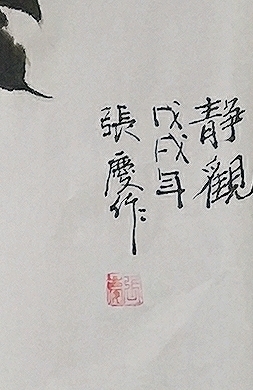 靜觀
戊戌年
張慶作
張慶